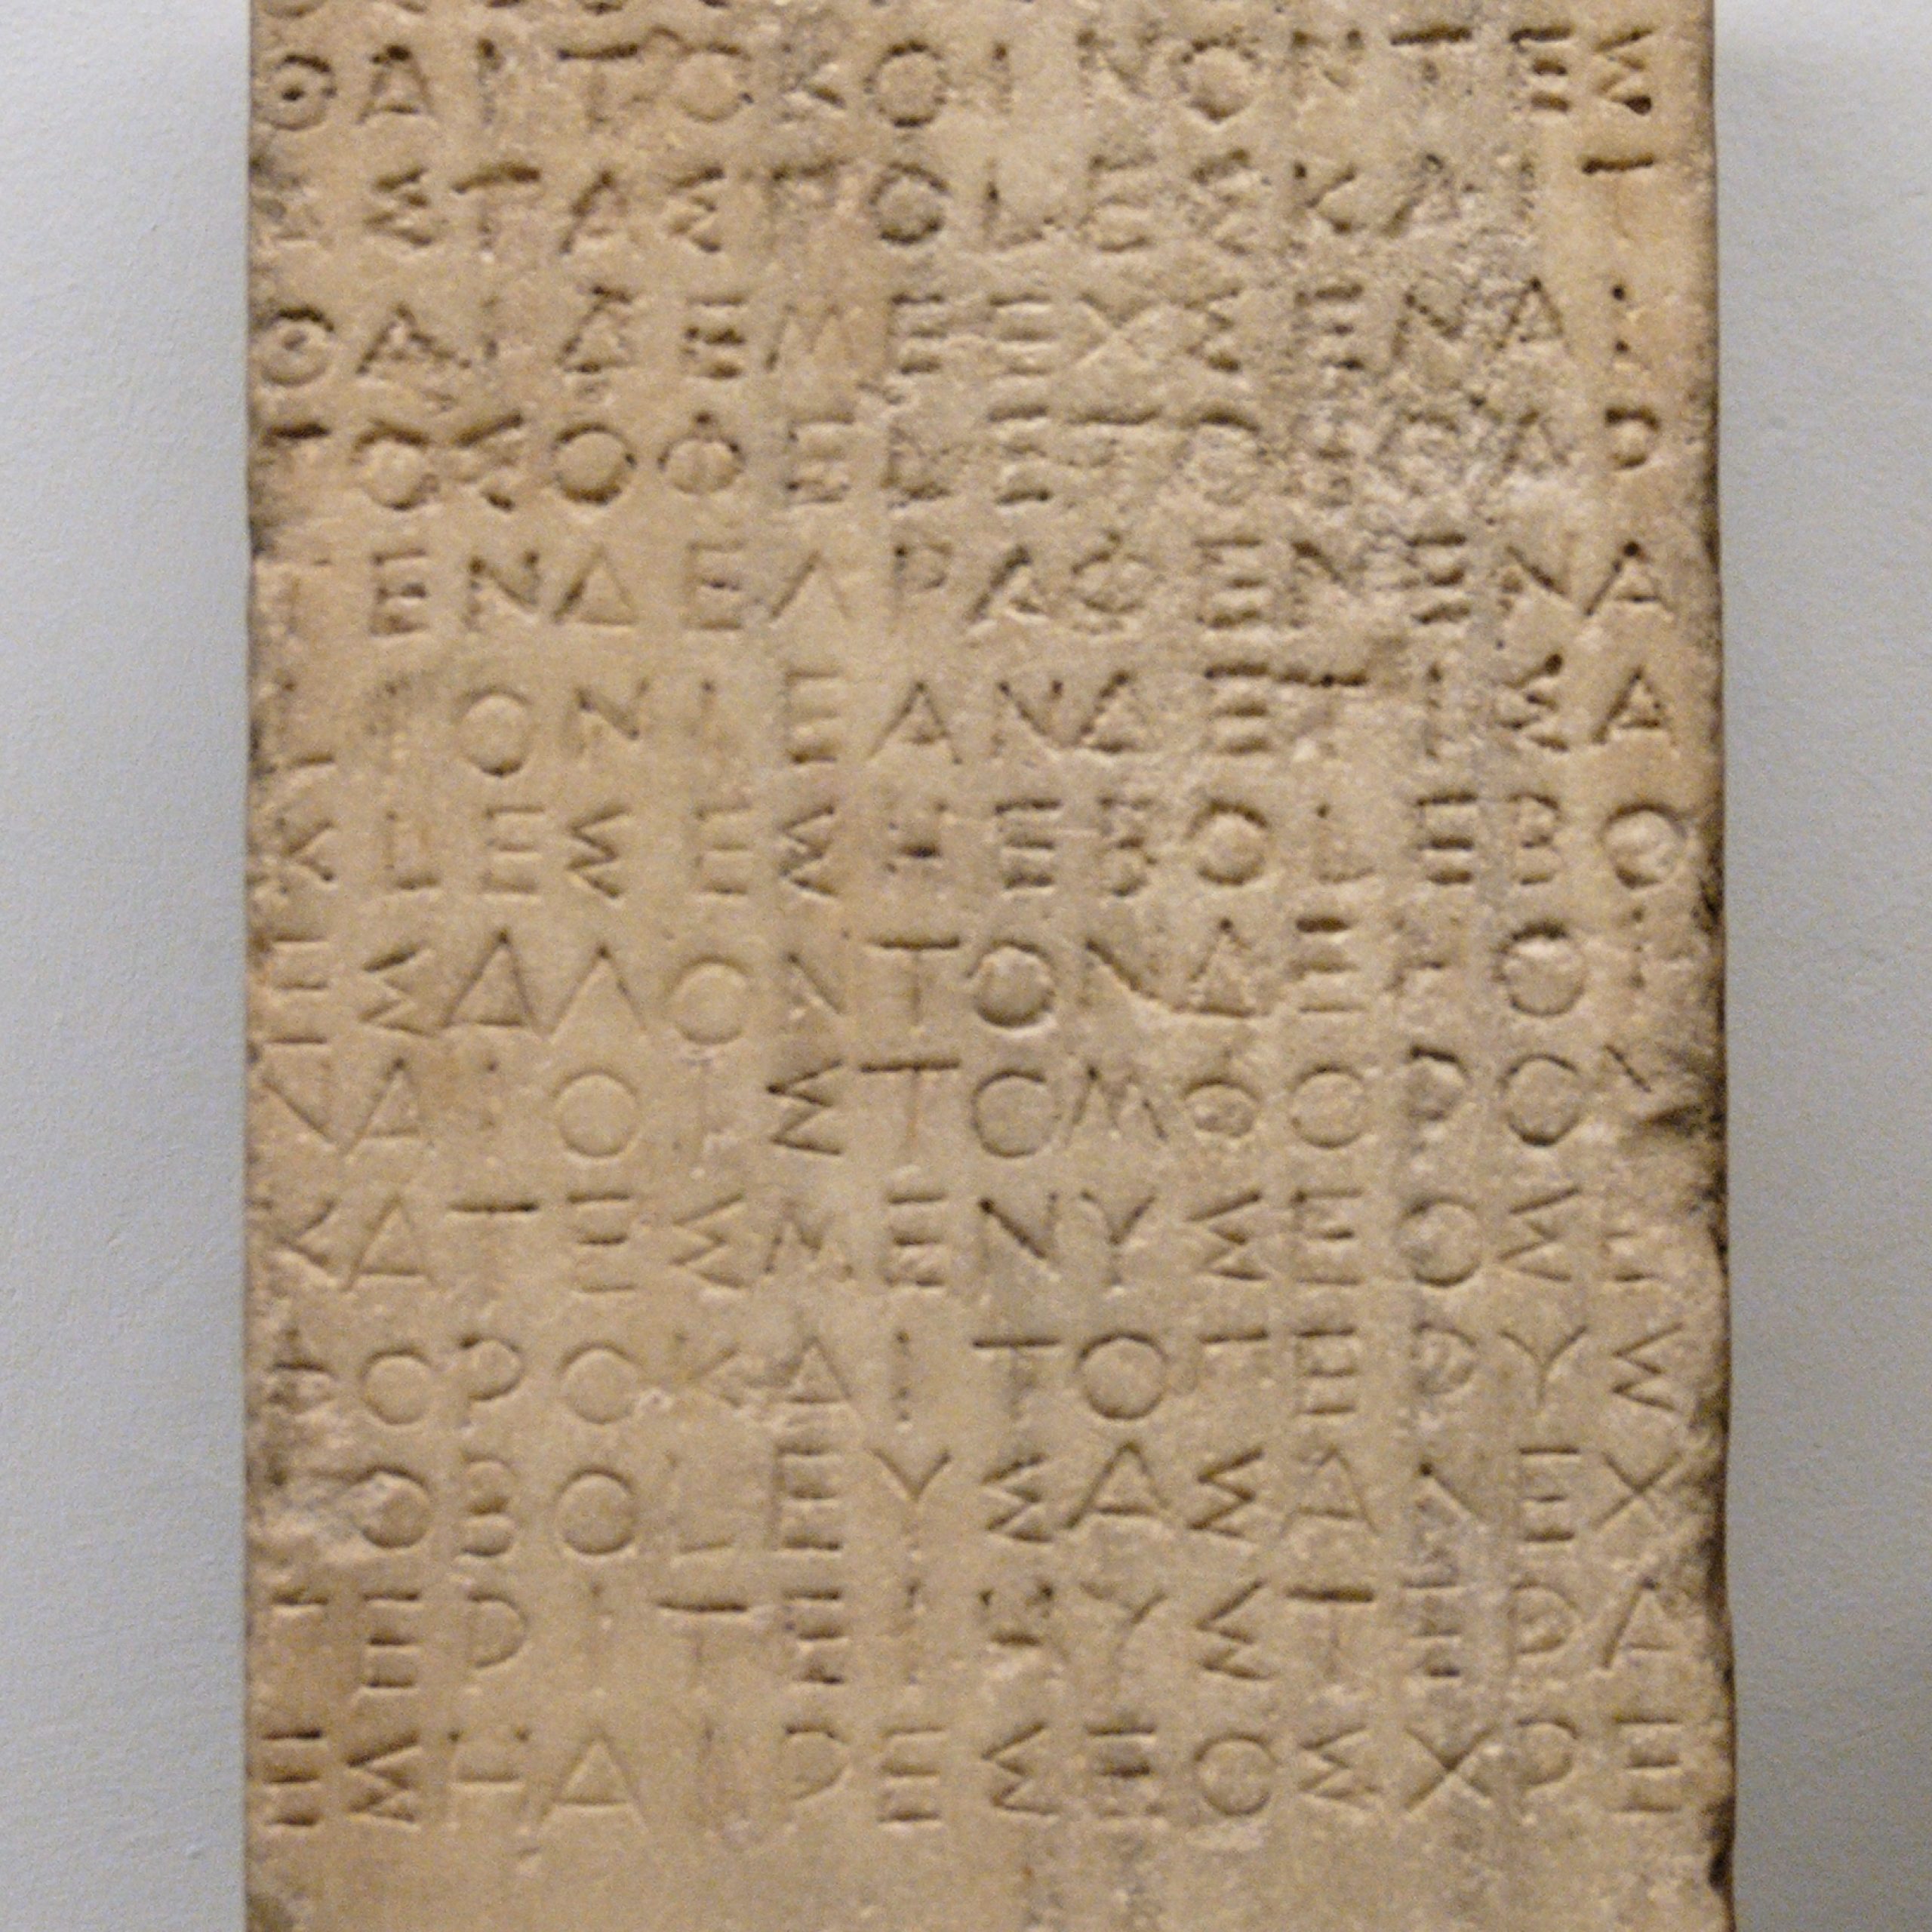 ΘΑΙΤΟΚΟΙΝΟΝΤΕΣ
ΣΤΑΣΠΟΛΕΣΚΑΙΤ
ΘΑΙΔΕΜΕΕΧΣΕΝΑΙ
ΤΟΚΟΦΕΛΕΤΟΗΟΔΡ
ΤΕΝΔΕΓΡΑΦΕΝΕΝΑ
ΟΝΙΕΑΝΔΕΤΙΣΑ
ΚΛΕΣΕΣΗΕΒΟΛΕΒΟ
ΕΣΑΓΟΝΤΟΝΔΕΗΟΙ
ΝΑΙΟΙΣΤΟΜΦΟΡΟΝ
ΚΑΤΕΣΜΕΝΥΣΕΟΣΕ
ΦΟΡΟΚΑΙΤΟΠΕΡΥΣ
ΟΒΟΛΕΥΣΑΣΑΝΕΧ
ΠΕΡΙΤΕΙΗΥΣΤΕΡΑ
ΕΣΗΑΙΡΕΣΕΟΣΧΡΕ